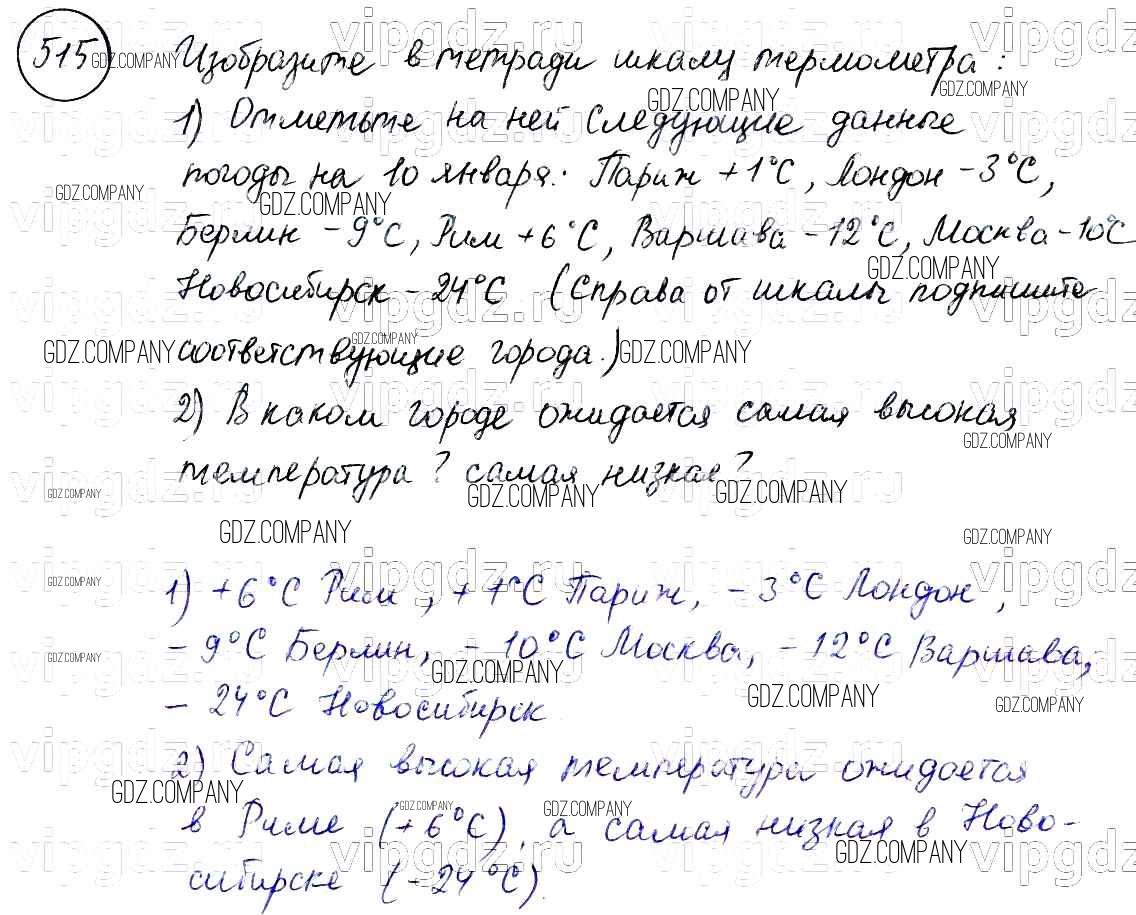 515 Изобразите в тетради шкалу термометра:
1) Отметьте на ней следующие данные
погоды на 10 января: Париж +1°C, Лондон -3°C,
Берлин -9°C, Рим +6°C, Варшава -12°C, Москва -10°C
Новосибирск -24°C (Справа от шкалы подпишите
соответствующие города.)
2) В каком городе ожидается самая высокая
температура? самая низкая?
1) +6°C Рим, +1°C Париж, -3°C Лондон,
-9°C Берлин, -10°C Москва, -12°C Варшава,
-24°C Новосибирск
2) Самая высокая температура ожидается
в Риме (+6°C), а самая низкая в Ново-
сибирске (-24°C).